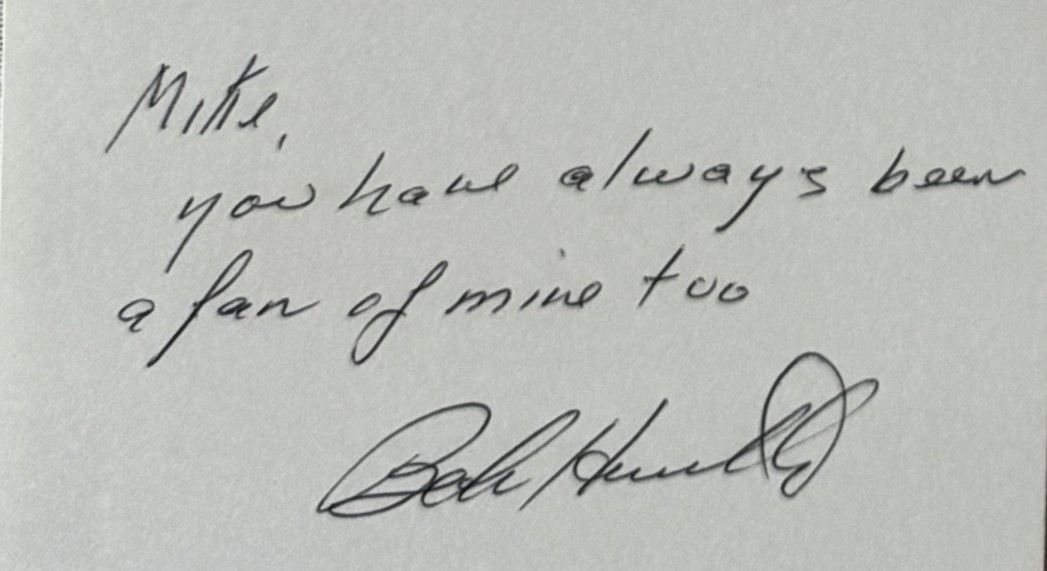 Mike,
you have always been
a fan of mine too
Bob